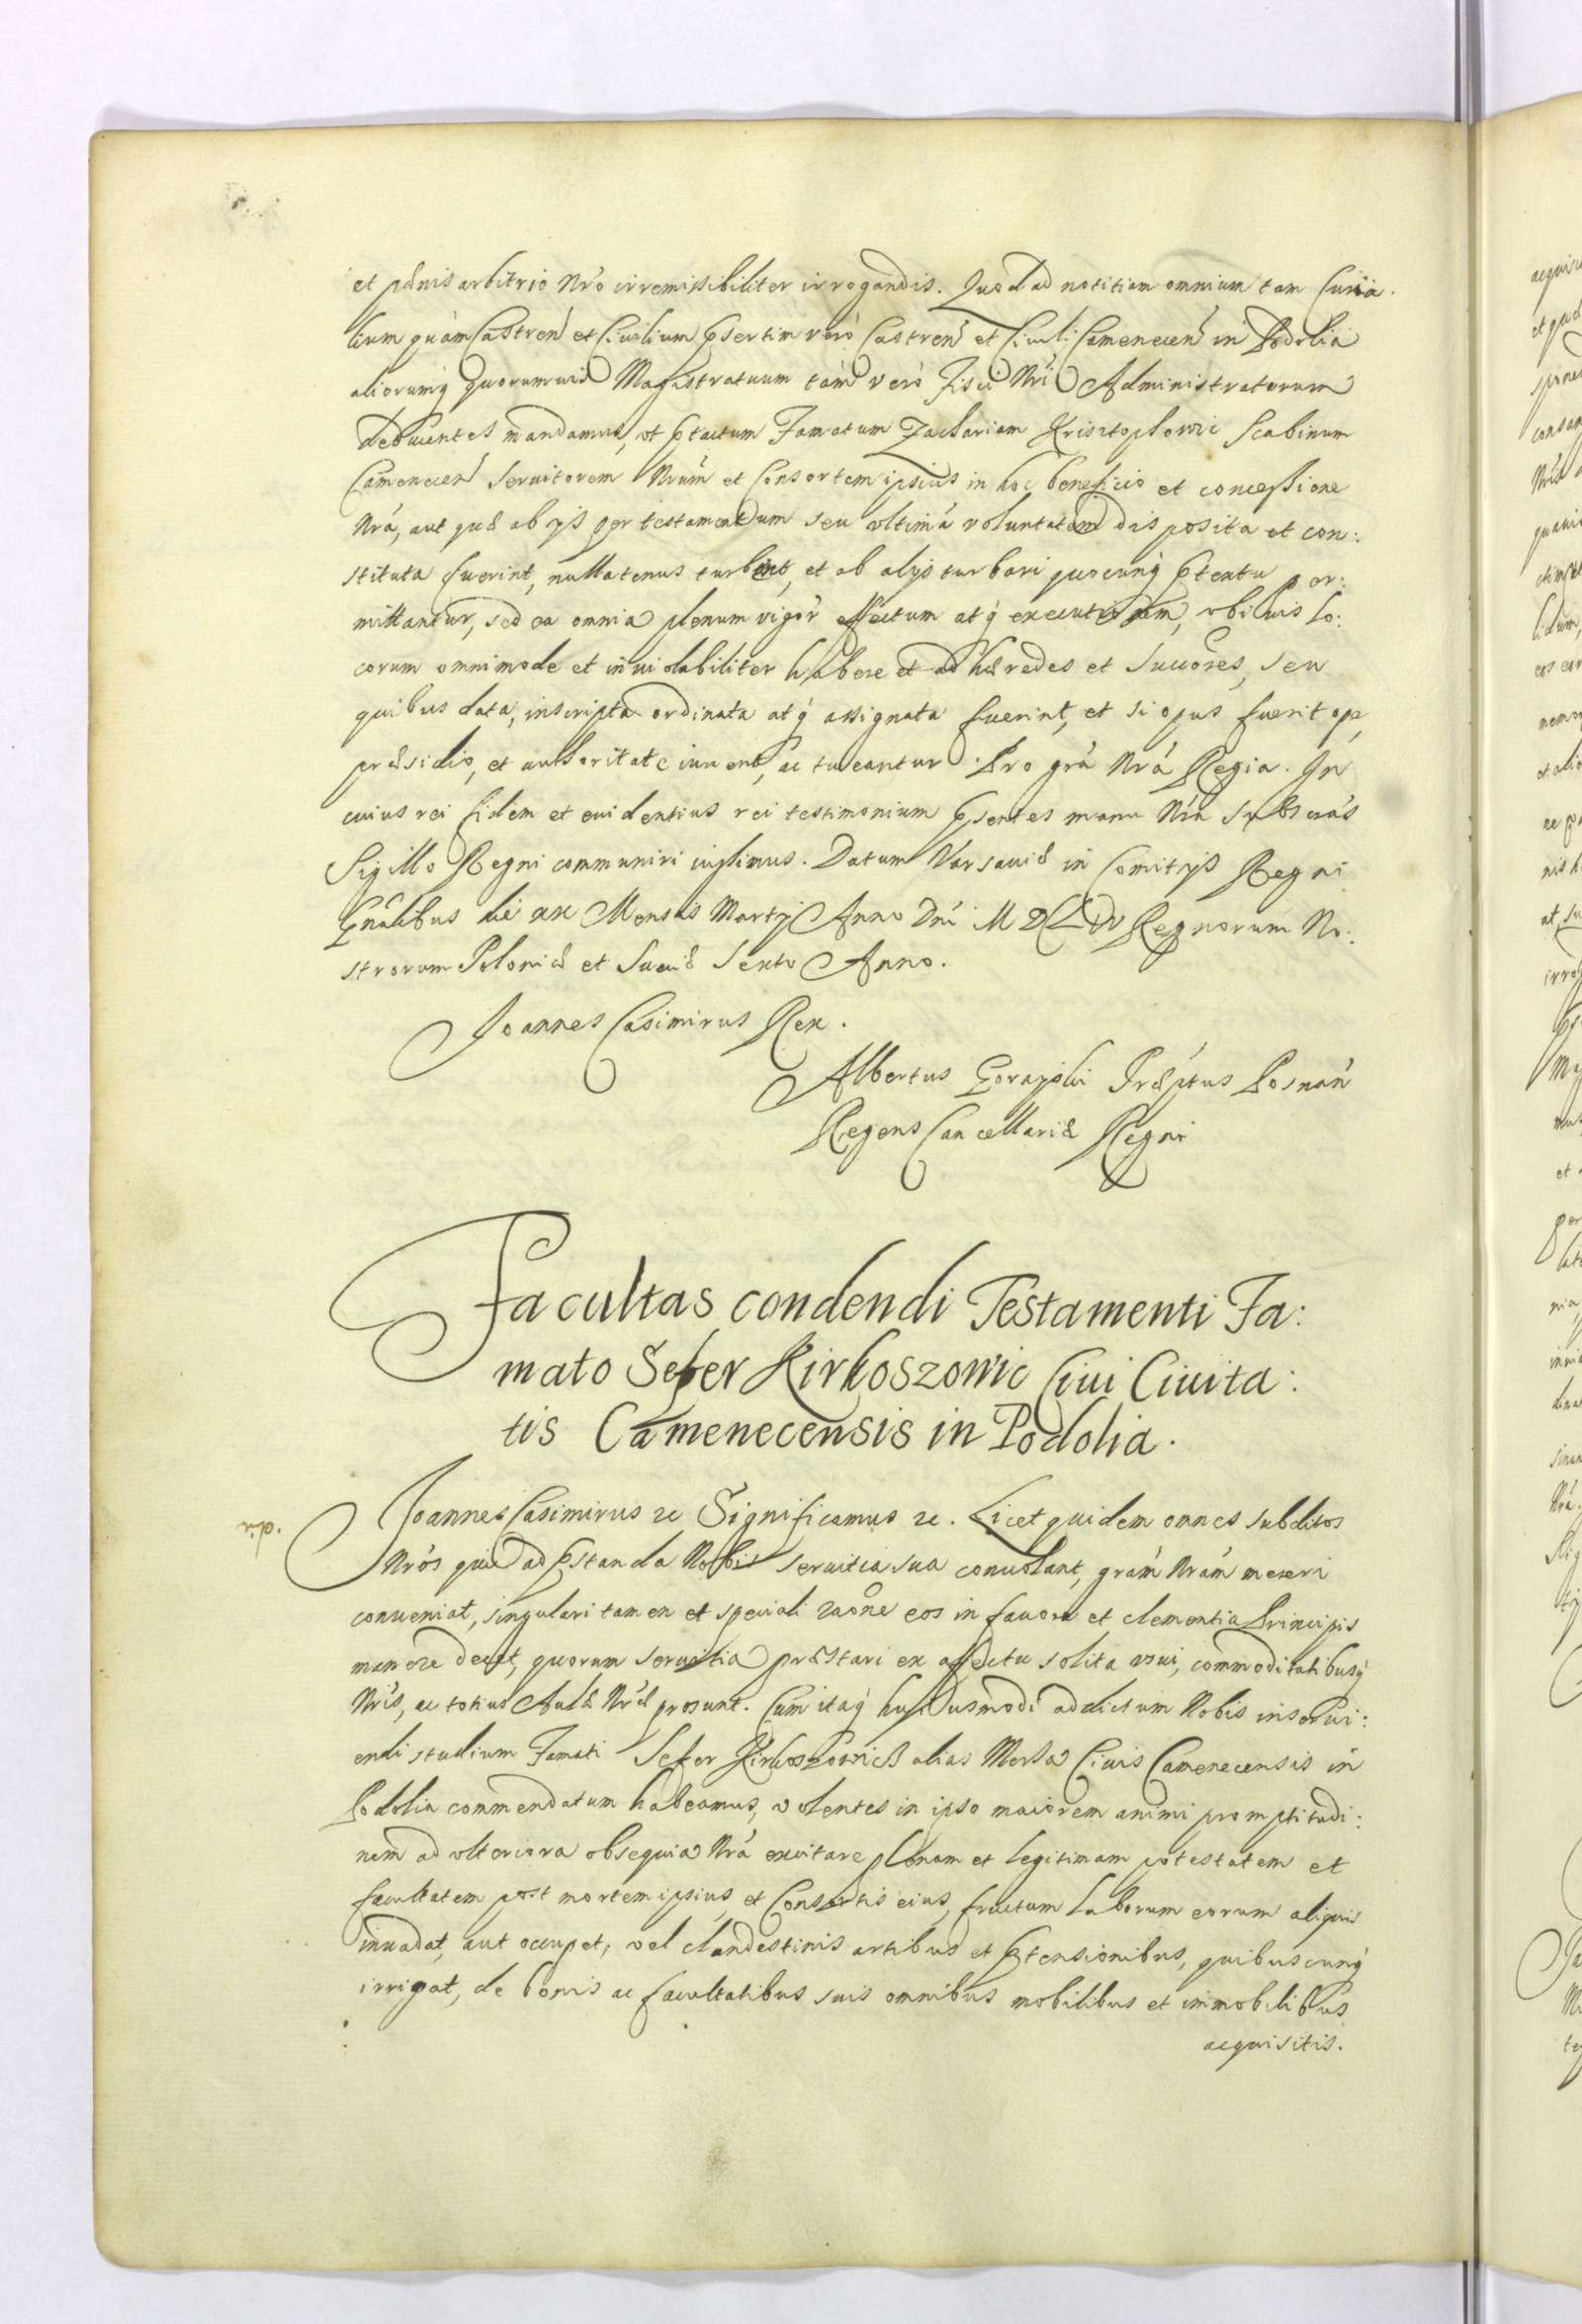 et pænis arbitrio Nro irremissibiliter irrogandis. Quod ad notitiam omnium tam Curia:
lium quàm Castren et Ciuilium psertim verò Castren et Ciuili Camenecen in Podolia
aliorumq quorumuis Magistratuum tam verò Fisci Nri Administratorum
deducentes mandamus, vt ptactum Famatum Zachariam Krisztophowic Scabinum
Camenecen Seruitorem Nrum et Consortem ipsius in hoc beneficio et concessione
Nrá, aut quæ ab ijs per testamentum seu vltimá voluntatem disposita et con:
stituta fuerint, nullatenus turbent, et ab alijs turbari quocunq ptextu per:
mittantur, sed ea omnia plenum vigor effectum atq executionem, vbiuis lo:
corum omnimode et inuiolabiliter habere et ad hæredes et Succores, seu
quibus data, inscripta ordinata atq assignata fuerint, et si opus fuerit ope,
præsidio, et authoritate iuuent, ac tueantur. Pro grá Nrá Regia. In
cuius rei fidem et euidentius rei testimonium psentes manu Nra Subscras
Sigillo Regni communiri iussimus. Datum Varsauiæ in Comitijs Regni
Gnalibus die xx Mensis Martij Anno Dni M DC LIV Regnorum No:
strorum Poloniæ et Sueciæ Sexto Anno.
Joannes Casimirus Rex.
Albertus Gorayski Præptus Posnan
Regens Cancellariæ Regni
Facultas condendi Testamenti Fa:
mato Sefer Kirkoszowic Ciui Ciuita:
tis Camenecensis in Podolia.
Joannes Casimirus etc Significamus etc. Licet quidem omnes subditos
Nros qui ad pstanda Nobis seruitia sua conuolant, gram Nram mereri
conueniat, singulari tamen et speciali raone eos in fauore et clementia Principis
manere decet, quorum seruitia præstari ex affectu solita vsui, commoditatibusq
Nris, ac totius Aulæ Nræ prosunt. Cum itaq huiusmodi addictum Nobis inserui:
endi studium Famati Sefer Kirkoszowicz alias Mersa Ciuis Camenecensis in
Podolia commendatum habeamus, volentes in ipso maiorem animi promptitudi:
nem ad vlteriora obsequia Nrá excitare plenam et legitimam potestatem et
facultatem post mortem ipsius, et Consortis eius, fructum laborum eorum aliquis
inuadat, aut occupet, vel clandestinis artibus et ptensionibus, quibuscunq
irrigat, de bonis ac facultatibus suis omnibus mobilibus et immobilibus
acquisitis.